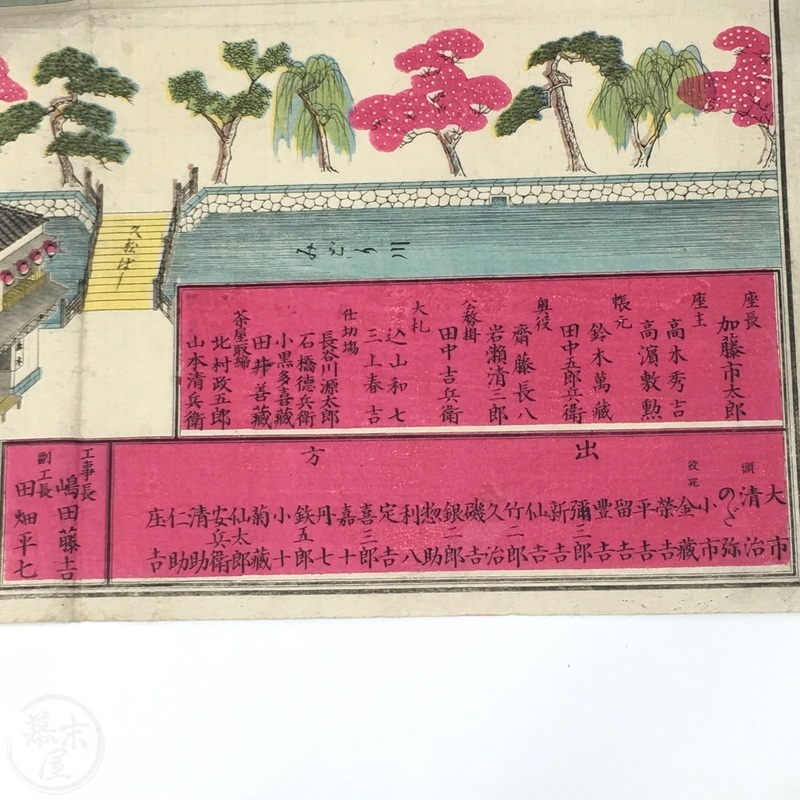 久松ばし
みどり川
座長
加藤市太郎
座主
高木秀吉
高濱敷勲
帳元
鈴木萬藏
田中五郎兵衛
奥役
齋藤長八
岩瀬清三郎
公務掛
田中吉兵衛
大札
込山和七
三上春吉
仕切場
長谷川源太郎
石橋德兵衛
小黒多喜藏
田井善藏
茶屋取締
北村政五郎
山本清兵衛
出方
頭
大市
清治
のだ弥
小市
金藏
榮吉
平吉
留吉
豊吉
彌三郎
新吉
仙吉
竹二郎
久治
磯吉
銀二郎
惣助
利八
定吉
喜三郎
嘉十
丹七
鉄五郎
小十
菊藏
仙太郎
安兵衛
清助
仁助
庄吉
工事長
嶋田藤吉
副工長
田畑平七
幕末屋